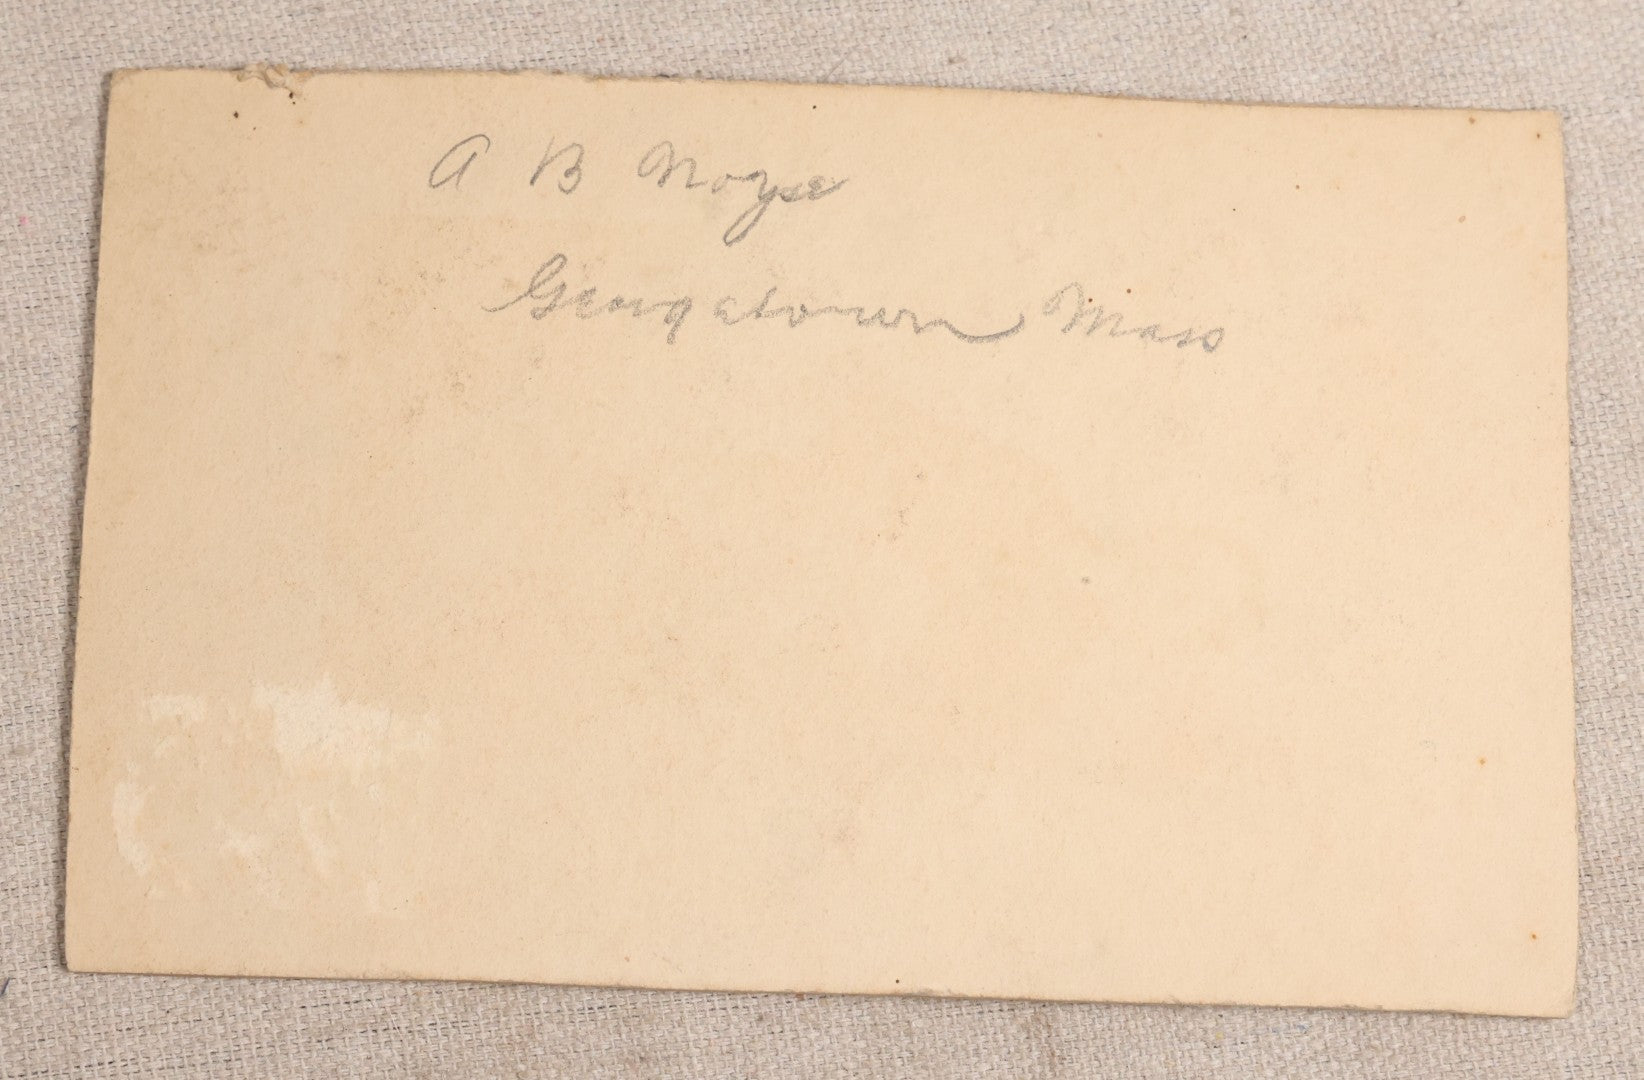 A B Noyse
Georgetown Mass